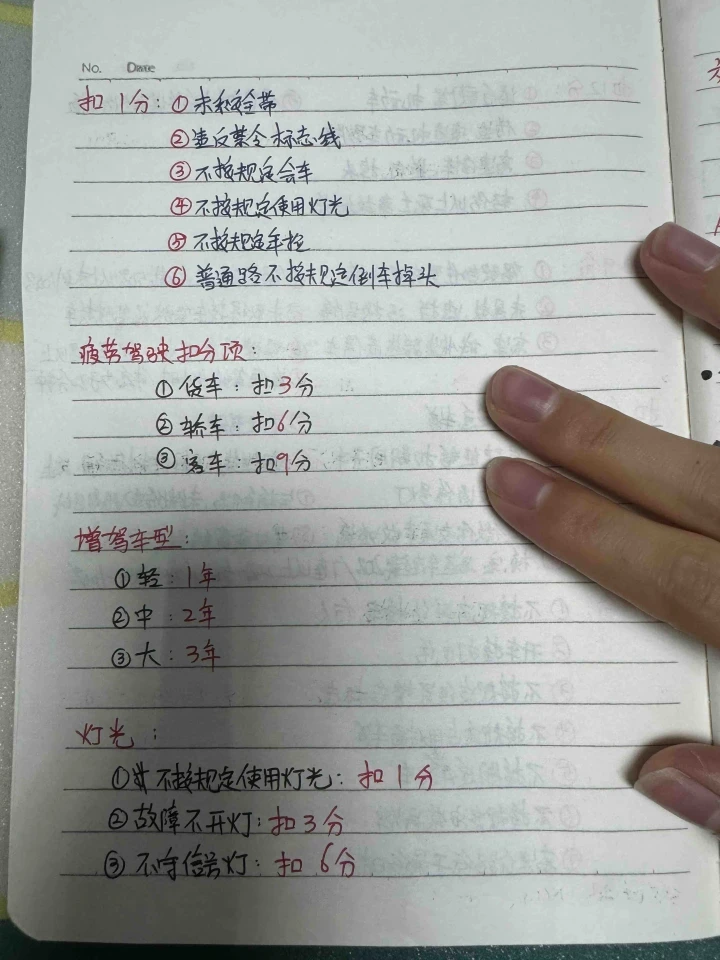 No. Date
扣1分：①未系安全带
②违反禁令标志线
③不按规定会车
④不按规定使用灯光
⑤不按规定年检
⑥普通路不按规定倒车掉头
疲劳驾驶扣分项：
①货车：扣3分
②轿车：扣6分
③客车：扣9分
增驾车型：
①轻：1年
②中：2年
③大：3年
灯光：
①不按规定使用灯光：扣1分
②故障不开灯：扣3分
③不守信号灯：扣6分